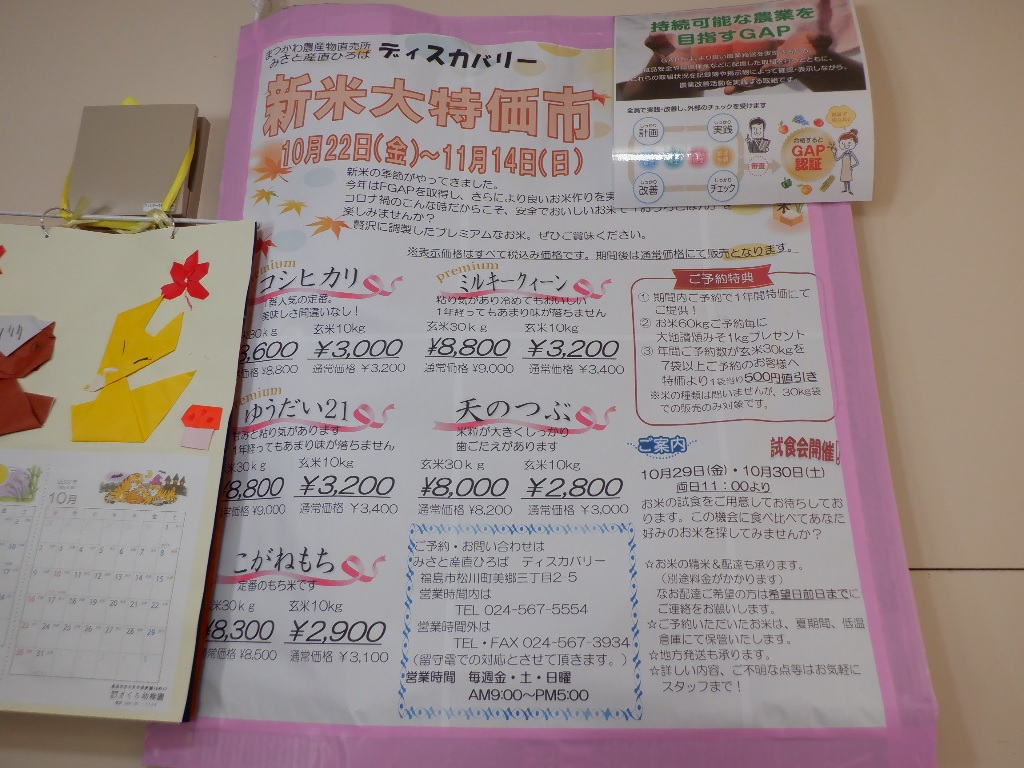 まつかわ農産物直売所
みさと産直ひろば ディスカバリー
新米大特価市
10月22日(金)~11月14日(日)
新米の季節がやってきました。
今年はFGAPを取得し、さらにより良いお米作りを実
コロナ禍のこんな時だからこそ、安全でおいしいお米で
楽しみませんか?
贅沢に調製したプレミアムなお米。ぜひご賞味ください。
※表示価格はすべて税込み価格です。期間後は通常価格にて販売となります。
premium
コシヒカリ
人気の定番。
美味しさ間違いなし!
30kg 玄米10kg
,600 ¥3,000
価格 ¥8,800 通常価格 ¥3,200
premium
ミルキークィーン
粘り気があり冷めてもおいしい
1年経ってもあまり味が落ちません
玄米30kg 玄米10kg
¥8,800 ¥3,200
通常価格 ¥9,000 通常価格 ¥3,400
premium
ゆうだい21
あと粘り気があります
1年経ってもあまり味が落ちません
米30kg 玄米10kg
8,800 ¥3,200
常価格 ¥9,000 通常価格 ¥3,400
天のつぶ
米粒が大きくしっかり
歯ごたえがあります
玄米30kg 玄米10kg
¥8,000 ¥2,800
通常価格 ¥8,200 通常価格 ¥3,000
こがねもち
定番のもち米です
米30kg 玄米10kg
¥8,300 ¥2,900
常価格 ¥8,500 通常価格 ¥3,100
ご予約特典
① 期間内ご予約で1年間特価にて
ご提供!
② お米60kgご予約毎に
大地讃頌みそ1kgプレゼント
③ 年間ご予約数が玄米30kgを
7袋以上ご予約のお客様へ
特価より1袋当り500円値引き
※米の種類は問いませんが、30kg袋
での販売のみ対象です。
ご案内 試食会開催!
10月29日(金)・10月30日(土)
両日11:00より
お米の試食をご用意してお待ちしてお
ります。この機会に食べ比べてあなた
好みのお米を探してみませんか?
☆お米の精米&配達も承ります。
(別途料金がかかります)
なお配達ご希望の方は希望日前日までに
ご連絡をお願いします。
☆ご予約いただいたお米は、夏期間、低温
倉庫にて保管いたします。
☆地方発送も承ります。
☆詳しい内容、ご不明な点等はお気軽に
スタッフまで!
ご予約・お問い合わせは
みさと産直ひろば ディスカバリー
福島市松川町美郷三丁目25
営業時間内は
TEL 024-567-5554
営業時間外は
TEL・FAX 024-567-3934
(留守電での対応とさせて頂きます。)
営業時間 毎週金・土・日曜
AM9:00~PM5:00
持続可能な農業を
目指すGAP
全員で実践・改善し、外部のチェックを受けます
しっかり
計画
しっかり
実践
しっかり
改善
しっかり
チェック
審査
合格すると
GAP
認証
10月
さくら幼稚園